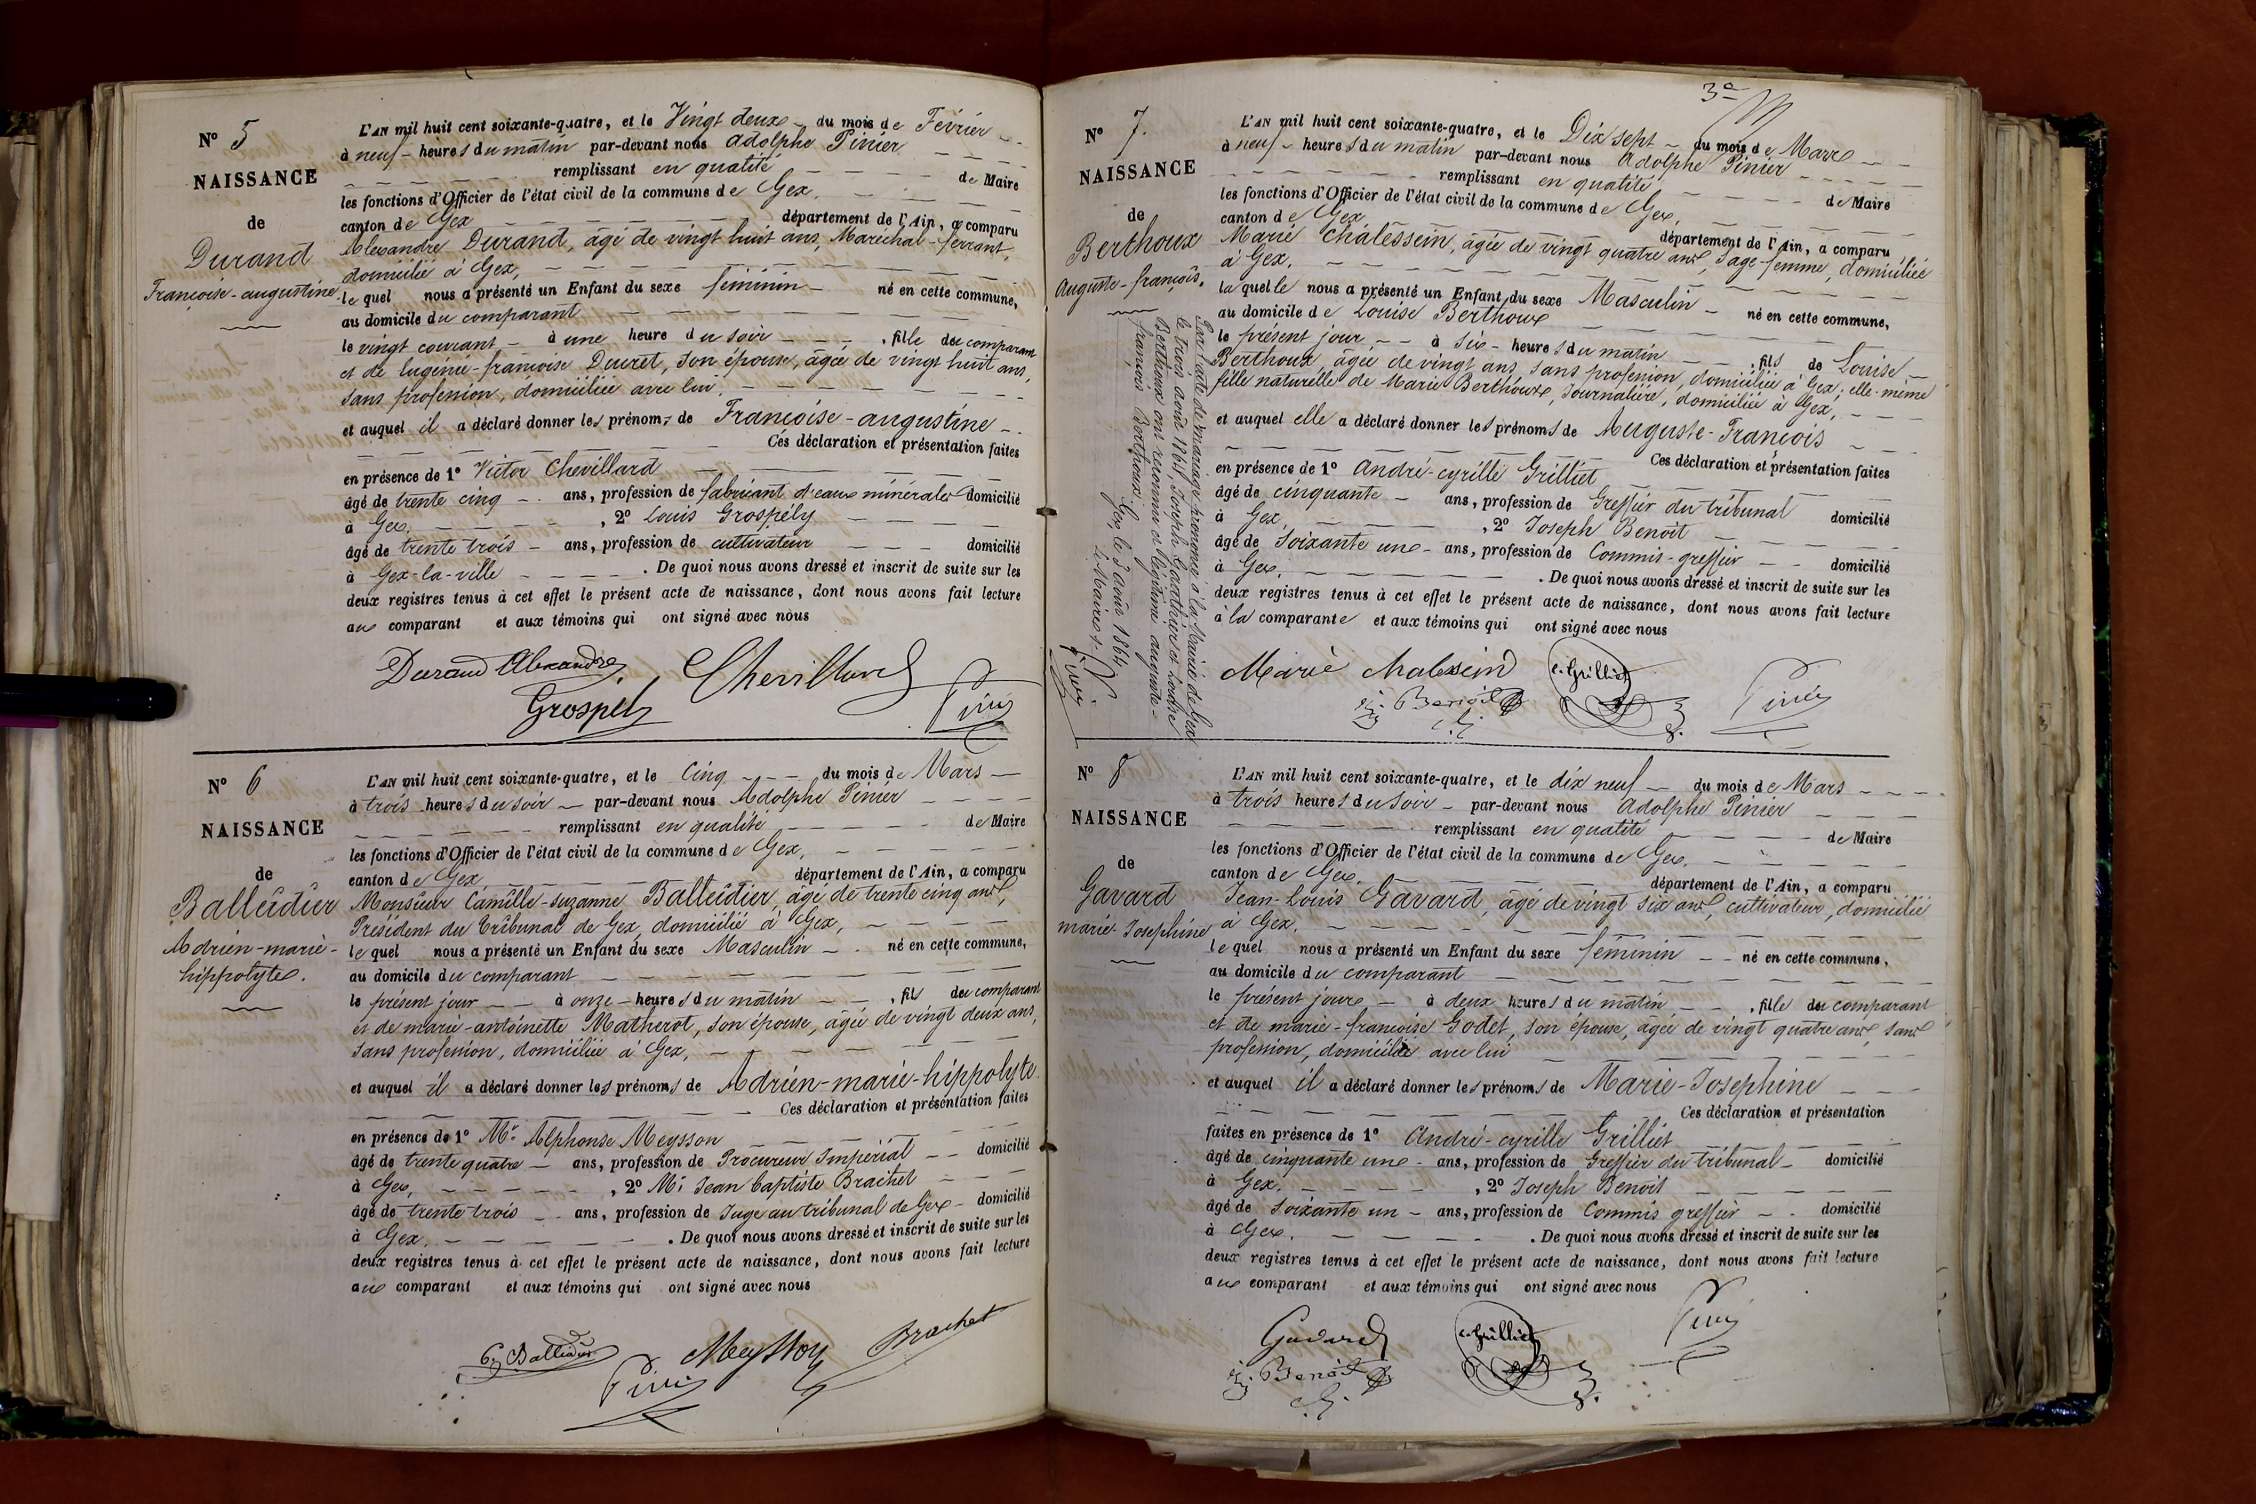 N° 5
NAISSANCE
de
Durand
Françoise-augustine
L'AN mil huit cent soixante-quatre, et le Vingt deux du mois de Février
à neuf heures du matin par-devant nous Adolphe Pinier
remplissant en qualité de Maire
les fonctions d'Officier de l'état civil de la commune de Gex,
canton de Gex département de l'Ain, a comparu
Alexandre Durand, âgé de vingt huit ans, Maréchal-ferrant,
domicilié à Gex,
le quel nous a présenté un Enfant du sexe féminin né en cette commune,
au domicile du comparant
le vingt courant à une heure du soir, fille du comparant
et de Eugénie-françoise Ducret, son épouse, âgée de vingt huit ans,
sans profession, domiciliée avec lui,
et auquel il a déclaré donner les prénoms de Françoise-augustine
Ces déclaration et présentation faites
en présence de 1° Victor Chevillard
âgé de trente cinq ans, profession de fabricant d'eaux minérales domicilié
à Gex, , 2° Louis Grospély
âgé de trente trois ans, profession de cultivateur domicilié
à Gex-la-ville . De quoi nous avons dressé et inscrit de suite sur les
deux registres tenus à cet effet le présent acte de naissance, dont nous avons fait lecture
au comparant et aux témoins qui ont signé avec nous
Durand Alexandre Chevillard
Grospely Pinier
N° 6
NAISSANCE
de
Balleidier
Adrien-marie-
hippolyte.
L'AN mil huit cent soixante-quatre, et le Cinq du mois de Mars
à trois heures du soir par-devant nous Adolphe Pinier
remplissant en qualité de Maire
les fonctions d'Officier de l'état civil de la commune de Gex,
canton de Gex département de l'Ain, a comparu
Monsieur Camille-suzanne Balleidier, âgé de trente cinq ans,
Président du Tribunal de Gex, domicilié à Gex,
le quel nous a présenté un Enfant du sexe Masculin né en cette commune,
au domicile du comparant
le présent jour à onze heures du matin , fils du comparant
et de marie-antoinette Matherot, son épouse, âgée de vingt deux ans,
sans profession, domiciliée à Gex,
et auquel il a déclaré donner les prénoms de Adrien-marie-hippolyte
Ces déclaration et présentation faites
en présence de 1° Mr. Alphonse Meysson
âgé de trente quatre ans, profession de Procureur Impérial domicilié
à Gex, , 2° Mr Jean Baptiste Brachet
âgé de trente trois ans, profession de Juge au tribunal de Gex domicilié
à Gex, . De quoi nous avons dressé et inscrit de suite sur les
deux registres tenus à cet effet le présent acte de naissance, dont nous avons fait lecture
au comparant et aux témoins qui ont signé avec nous
Balleidier Meysson Brachet
Pinier
3e
N° 7.
NAISSANCE
de
Berthoux
Auguste-françois.
L'AN mil huit cent soixante-quatre, et le Dix sept du mois de Mars
à neuf heures du matin par-devant nous Adolphe Pinier
remplissant en qualité de Maire
les fonctions d'Officier de l'état civil de la commune de Gex,
canton de Gex département de l'Ain, a comparu
Marie Chalessein, âgée de vingt quatre ans, Sage-femme, domiciliée
à Gex.
la quelle nous a présenté un Enfant du sexe Masculin né en cette commune,
au domicile de Louise Berthoux
le présent jour à six heures du matin , fils de Louise
Berthoux âgée de vingt ans, sans profession, domiciliée à Gex; elle-même
fille naturelle de Marie Berthoux, Journalière, domiciliée à Gex,
et auquel elle a déclaré donner les prénoms de Auguste-François
Ces déclaration et présentation faites
en présence de 1° André-cyrille Grilliet
âgé de cinquante ans, profession de Greffier du tribunal domicilié
à Gex, , 2° Joseph Benoit
âgé de soixante un ans, profession de Commis-greffier domicilié
à Gex. . De quoi nous avons dressé et inscrit de suite sur les
deux registres tenus à cet effet le présent acte de naissance, dont nous avons fait lecture
à la comparante et aux témoins qui ont signé avec nous
Marie Chalessein c. Grilliet
j. Benoit Pinier
Par l'acte de mariage prononcé à la Mairie de Gex
le trois août 1864, Joseph et Louise
Berthoux ont reconnu et légitimé auguste-
françois Berthoux.
Gex, le 3 août 1864
Le Maire
Pinier
N° 8
NAISSANCE
de
Gavard
marie-Josephine
L'AN mil huit cent soixante-quatre, et le dix neuf du mois de Mars
à trois heures du soir par-devant nous Adolphe Pinier
remplissant en qualité de Maire
les fonctions d'Officier de l'état civil de la commune de Gex,
canton de Gex. département de l'Ain, a comparu
Jean-Louis Gavard, âgé de vingt six ans, cultivateur, domicilié
à Gex.
le quel nous a présenté un Enfant du sexe féminin né en cette commune,
au domicile du comparant
le présent jour à deux heures du matin , fille du comparant
et de marie-françoise Godet, son épouse, âgée de vingt quatre ans, sans
profession, domiciliée avec lui
et auquel il a déclaré donner les prénoms de Marie-Josephine
Ces déclaration et présentation
faites en présence de 1° André-cyrille Grilliet
âgé de cinquante un ans, profession de Greffier du tribunal domicilié
à Gex. , 2° Joseph Benoit
âgé de soixante un ans, profession de Commis greffier domicilié
à Gex. . De quoi nous avons dressé et inscrit de suite sur les
deux registres tenus à cet effet le présent acte de naissance, dont nous avons fait lecture
au comparant et aux témoins qui ont signé avec nous
Gavard c. Grilliet Pinier
j. Benoit